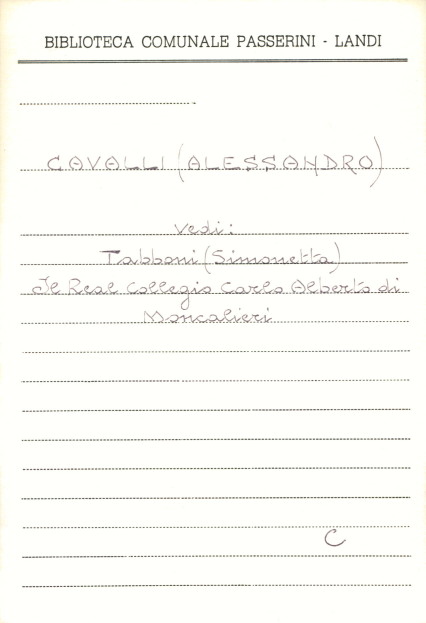 BIBLIOTECA COMUNALE PASSERINI - LANDI
CAVALLI (ALESSANDRO)
Vedi:
Tabboni (Simonetta)
Il Real Collegio Carlo Alberto di
Moncalieri
C